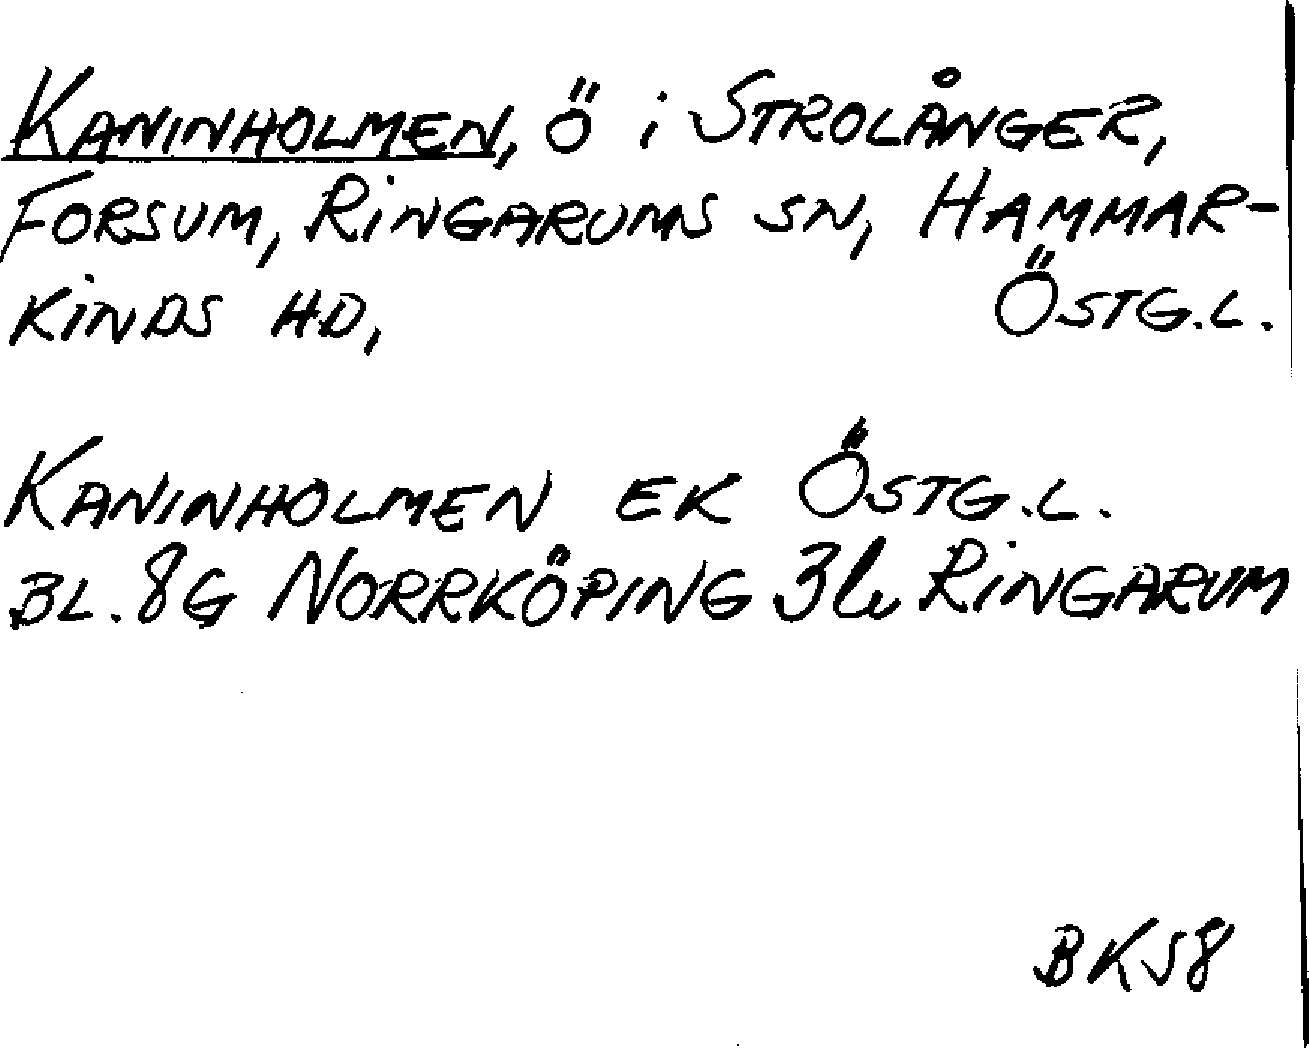 KANINHOLMEN, Ö i STROLÅNGER,
FORSUM, RINGARUMS SN, HAMMAR-
KINDS HD, ÖSTG.L.
KANINHOLMEN EK ÖSTG.L.
BL. 8G NORRKÖPING 3b RINGARUM
BKS8